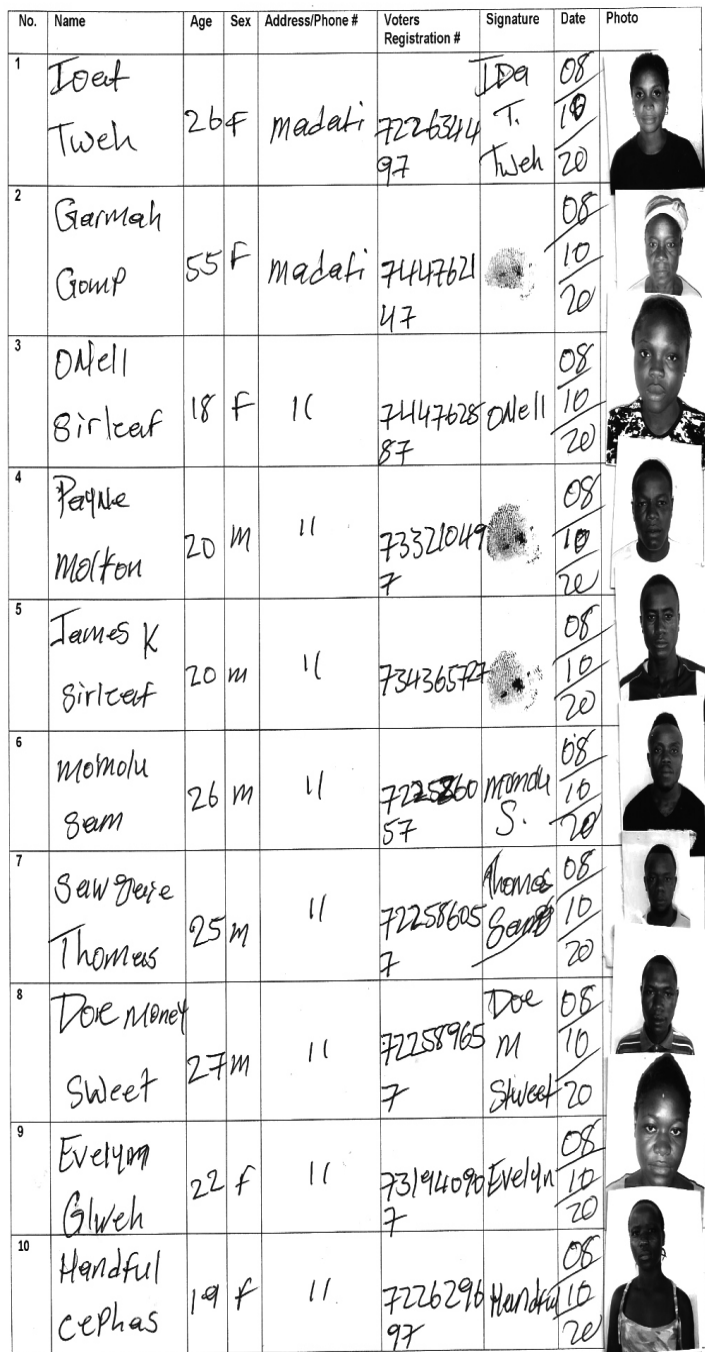 No. Name Age Sex Address/Phone # Voters Registration # Signature Date Photo
1 Tweh 26 F madafi 722634497 IDa T. Tweh 08/10/20
2 Garmah Gomp 55 F madafi 744762147 08/10/20
3 ONell Sirleaf 18 F 11 744762887 ONell 08/10/20
4 Payne Molton 20 m 11 733210497 08/10/20
5 James K Sirleaf 20 m 11 734365727 08/10/20
6 momolu Sam 26 m 11 Momolu S. 08/10/20
7 Thomas 25 m 11 722586057 Thomas 08/10/20
8 Doe money Sweet 27 m 11 722589657 Doe M Sweet 08/10/20
9 Evelyn Glweh 22 f 11 731940907 Evelyn 08/10/20
10 Handful cephas 19 f 11 722629697 Handful 08/10/20